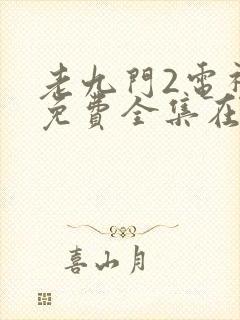 老九門2電視
免費全集在
喜山月